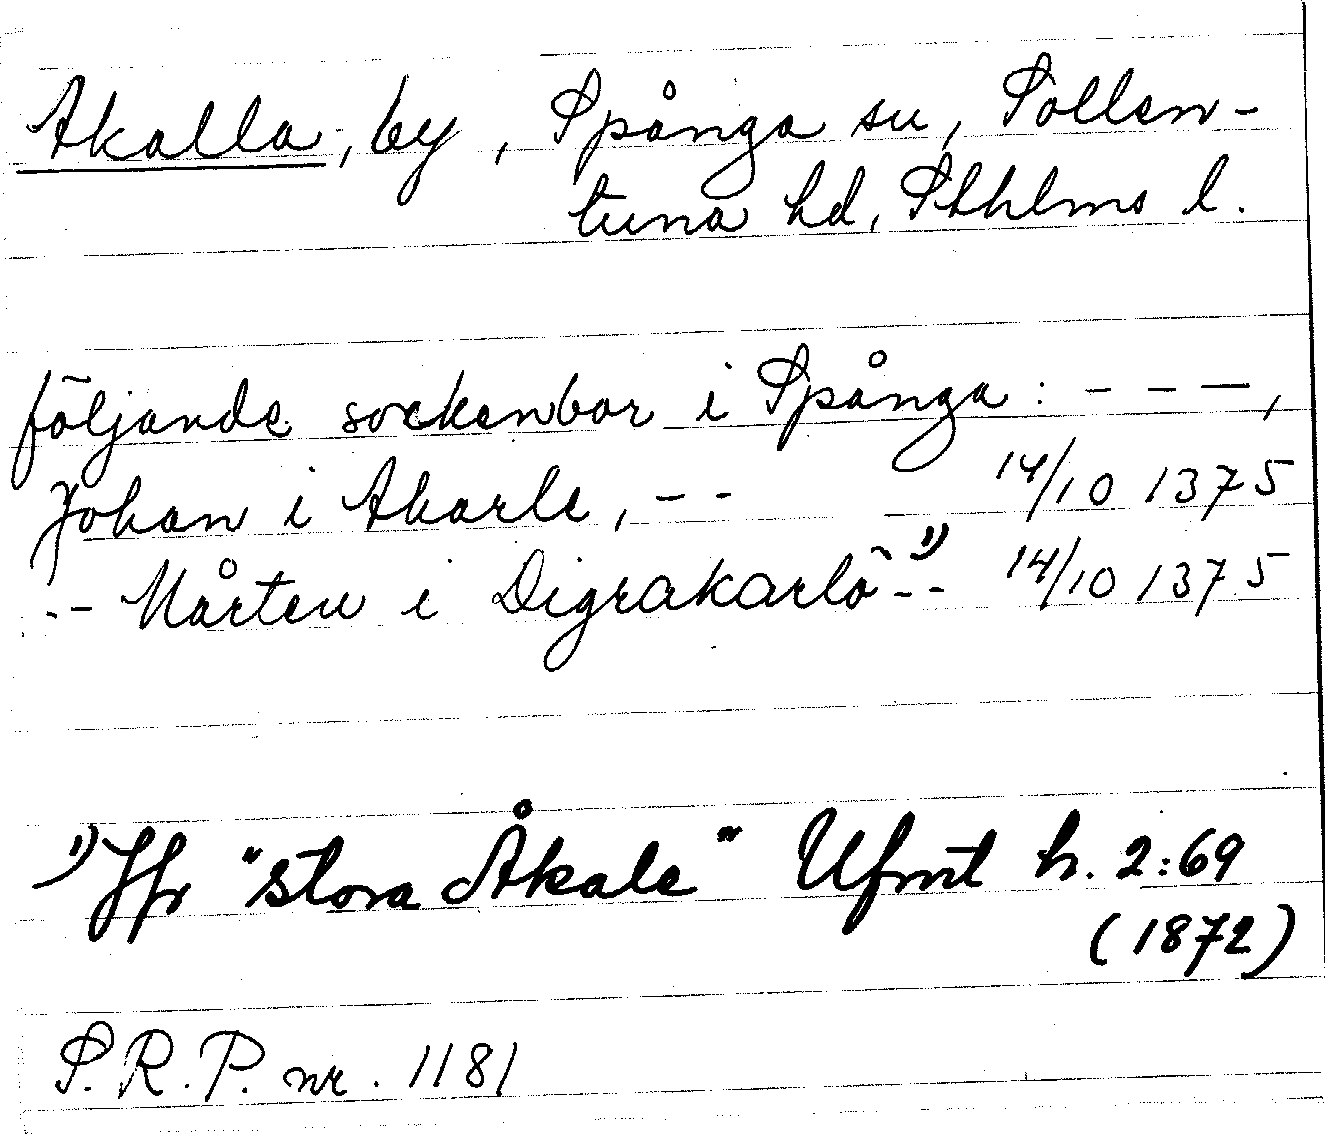 Akalla, by, Spånga sn, Sollen-
tuna hd, Sthlms l.
följande sockenbor i Spånga: - - -,
Johan i Akarle, - - 14/10 1375
-- Mårten i Digrakarlö 1) -- 14/10 1375
1) Jfr "stora Åkale" Ufmt h. 2:69
(1872)
S.R.P. nr. 1181